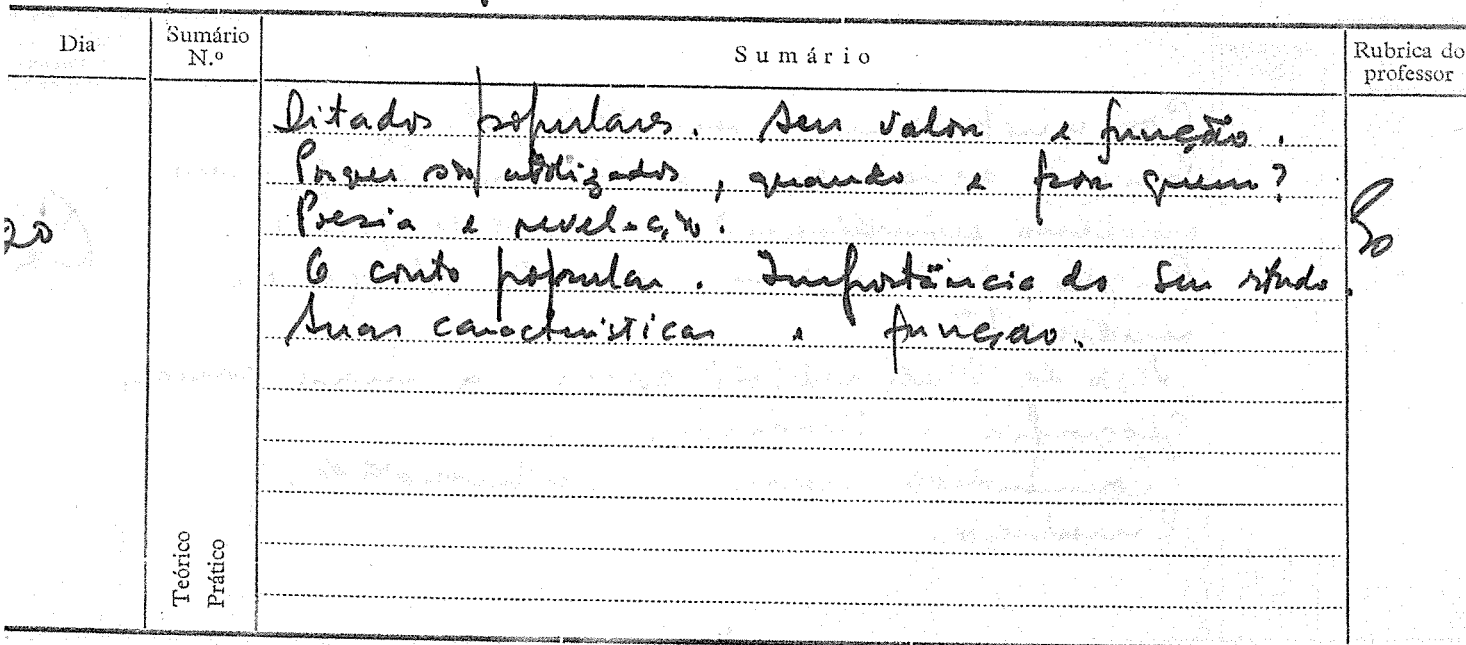 Dia
Sumário N.º
Sumário
Rubrica do professor
20
Ditados populares. Seu valor e função.
Porquê são utilizados, quando e por quem?
Poesia e revelação.
O conto popular. Importância do seu estudo.
Suas características e função.
Teórico
Prático